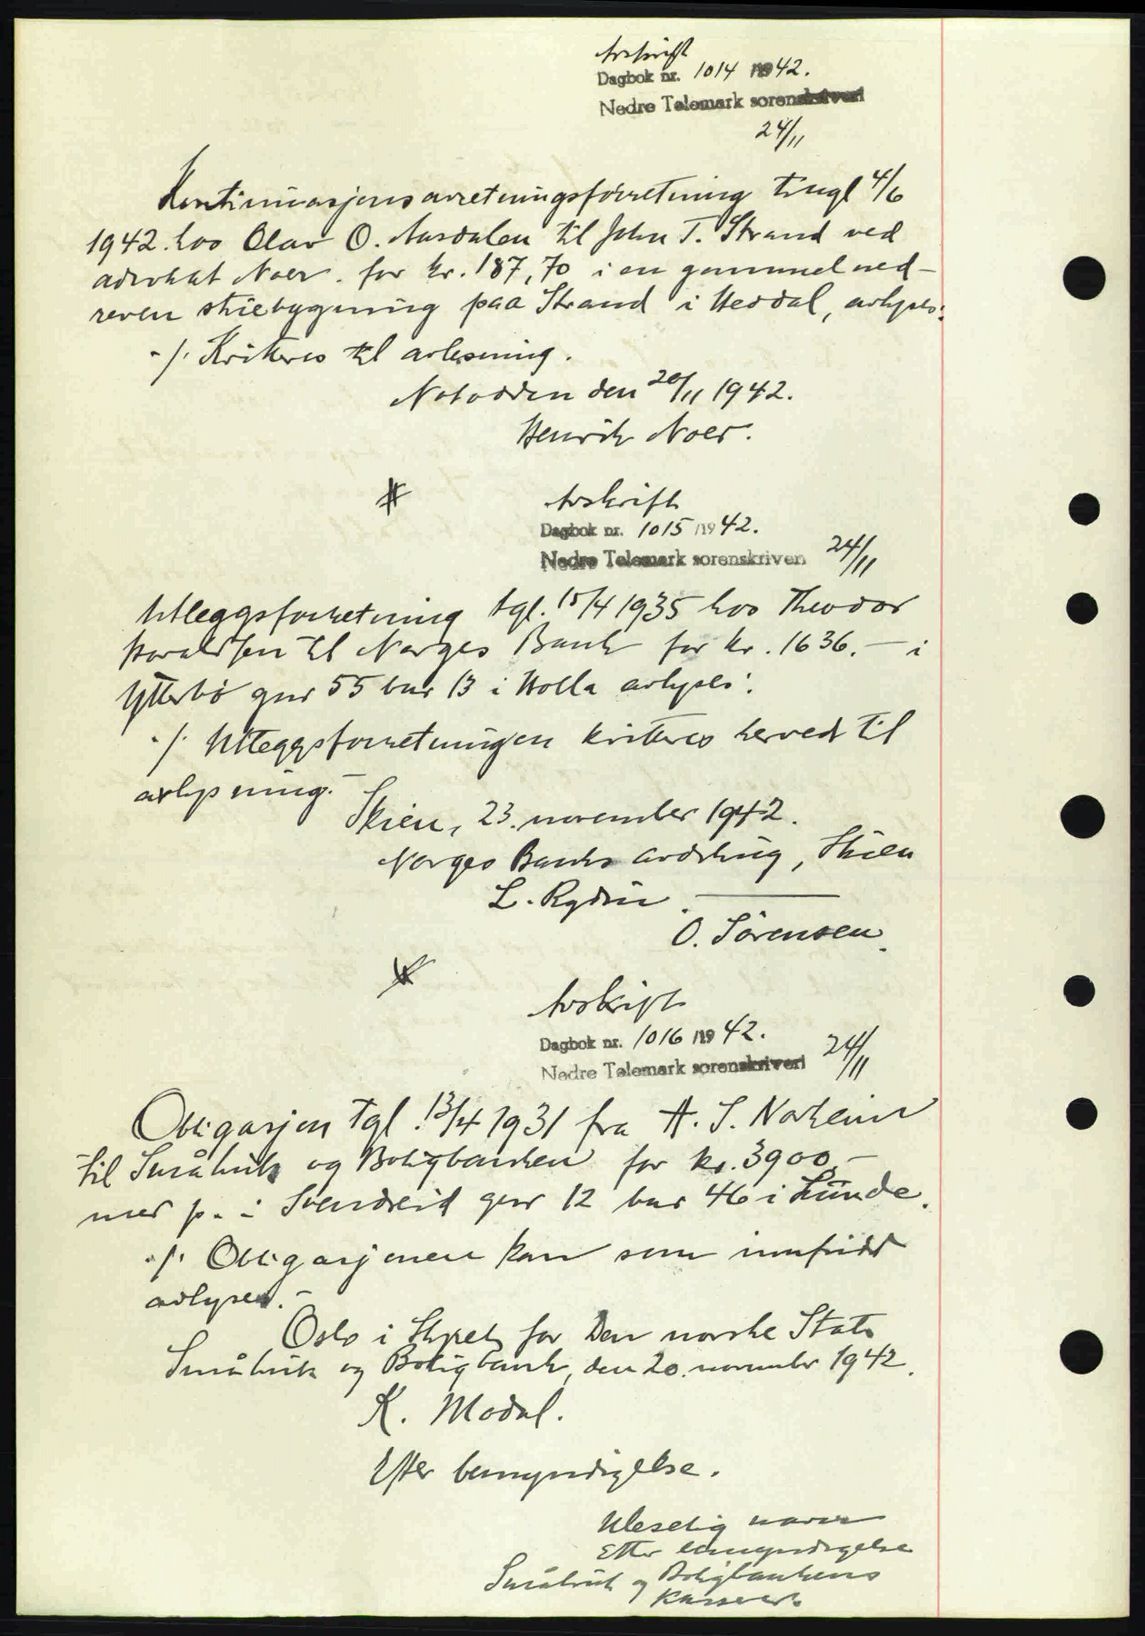 Avskrift
Dagbok nr. 1014 /1942.
Nedre Telemark sorenskriveri
24/11
Kontinuasjonsavretningsforretning tingl 4/6
1942 hos Olav O. Aasdalen til John T. Strand ved
advokat Noer. for kr. 187,70 i en gammel ned-
reven skiebygning paa Strand i Heddal, avlyses:
-/. Kvitteres til avlesning.
Notodden den 20/11 1942.
Henrik Noer.
Avskrift
Dagbok nr. 1015 /1942.
Nedre Telemark sorenskriveri 24/11
Utleggsforretning tgl. 15/4 1935 hos Theodor
Haraldsen til Norges Bank for kr. 1636.- i
Ytterbö gnr 55 bnr 13 i Holla avlyses:
-/. Utleggsforretningen kvitteres herved til
avlysning.-
Skien, 23. november 1942.
Norges Banks avdeling, Skien
L. Rydin.
O. Sörensen.
Avskrift
Dagbok nr. 1016 /1942.
Nedre Telemark sorenskriveri 24/11
Obligasjon tgl. 13/4 1931 fra A. S. Norheim
til Småbruk og Boligbanken for kr. 3900.-
mer p. i Svendseid gnr 12 bnr 46 i Lunde.
-/. Obligasjonen kan som innfridd
avlyses.-
Oslo i Styret for Den norske Stats
Småbruk og Boligbank, den 20. november 1942.
K. Modal.
Efter bemyndigelse.
Uleselig navn
Etter bemyndigelse
Småbruk og Boligbankens
Kasserer.